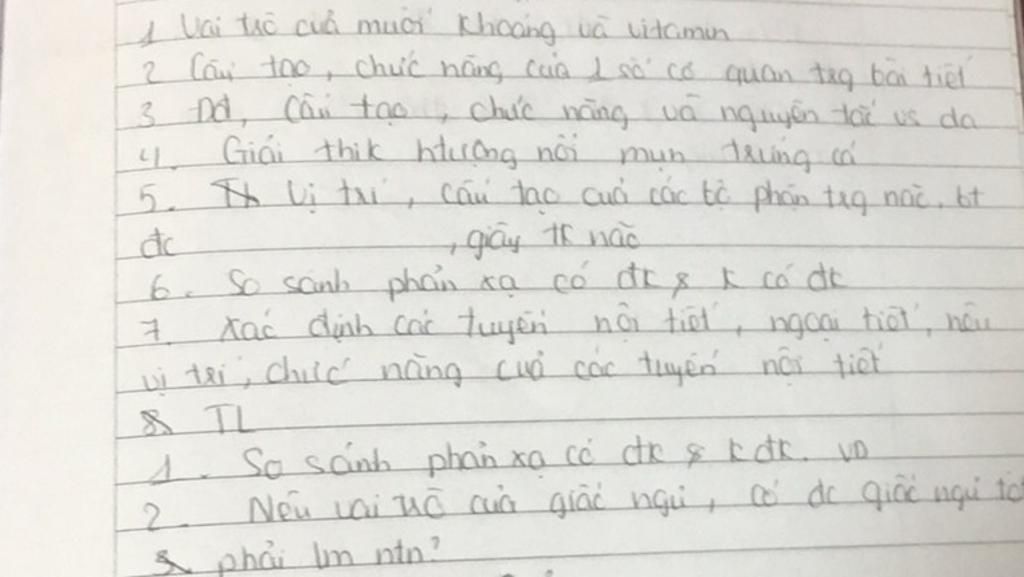 1 Vai trò của muối khoáng và vitamin
2 Cấu tạo, chức năng của 1 số cơ quan trg bài tiết
3 Đđ, Cấu tạo, chức năng và nguyên tắc vs da
4. Giải thik htượng nổi mụn trứng cá
5. Vị trí, cấu tạo của các bộ phận trg não, bt
đc , giây tk não
6. So sánh phản xạ có đk & k có đk
7. Xác định các tuyến nội tiết, ngoại tiết, nêu
vị trí, chức năng của các tuyến nội tiết
8 TL
1. So sánh phản xạ có đk & k đk. VD
2. Nêu vai trò của giấc ngủ, có đc giấc ngủ tốt
phải lm ntn?